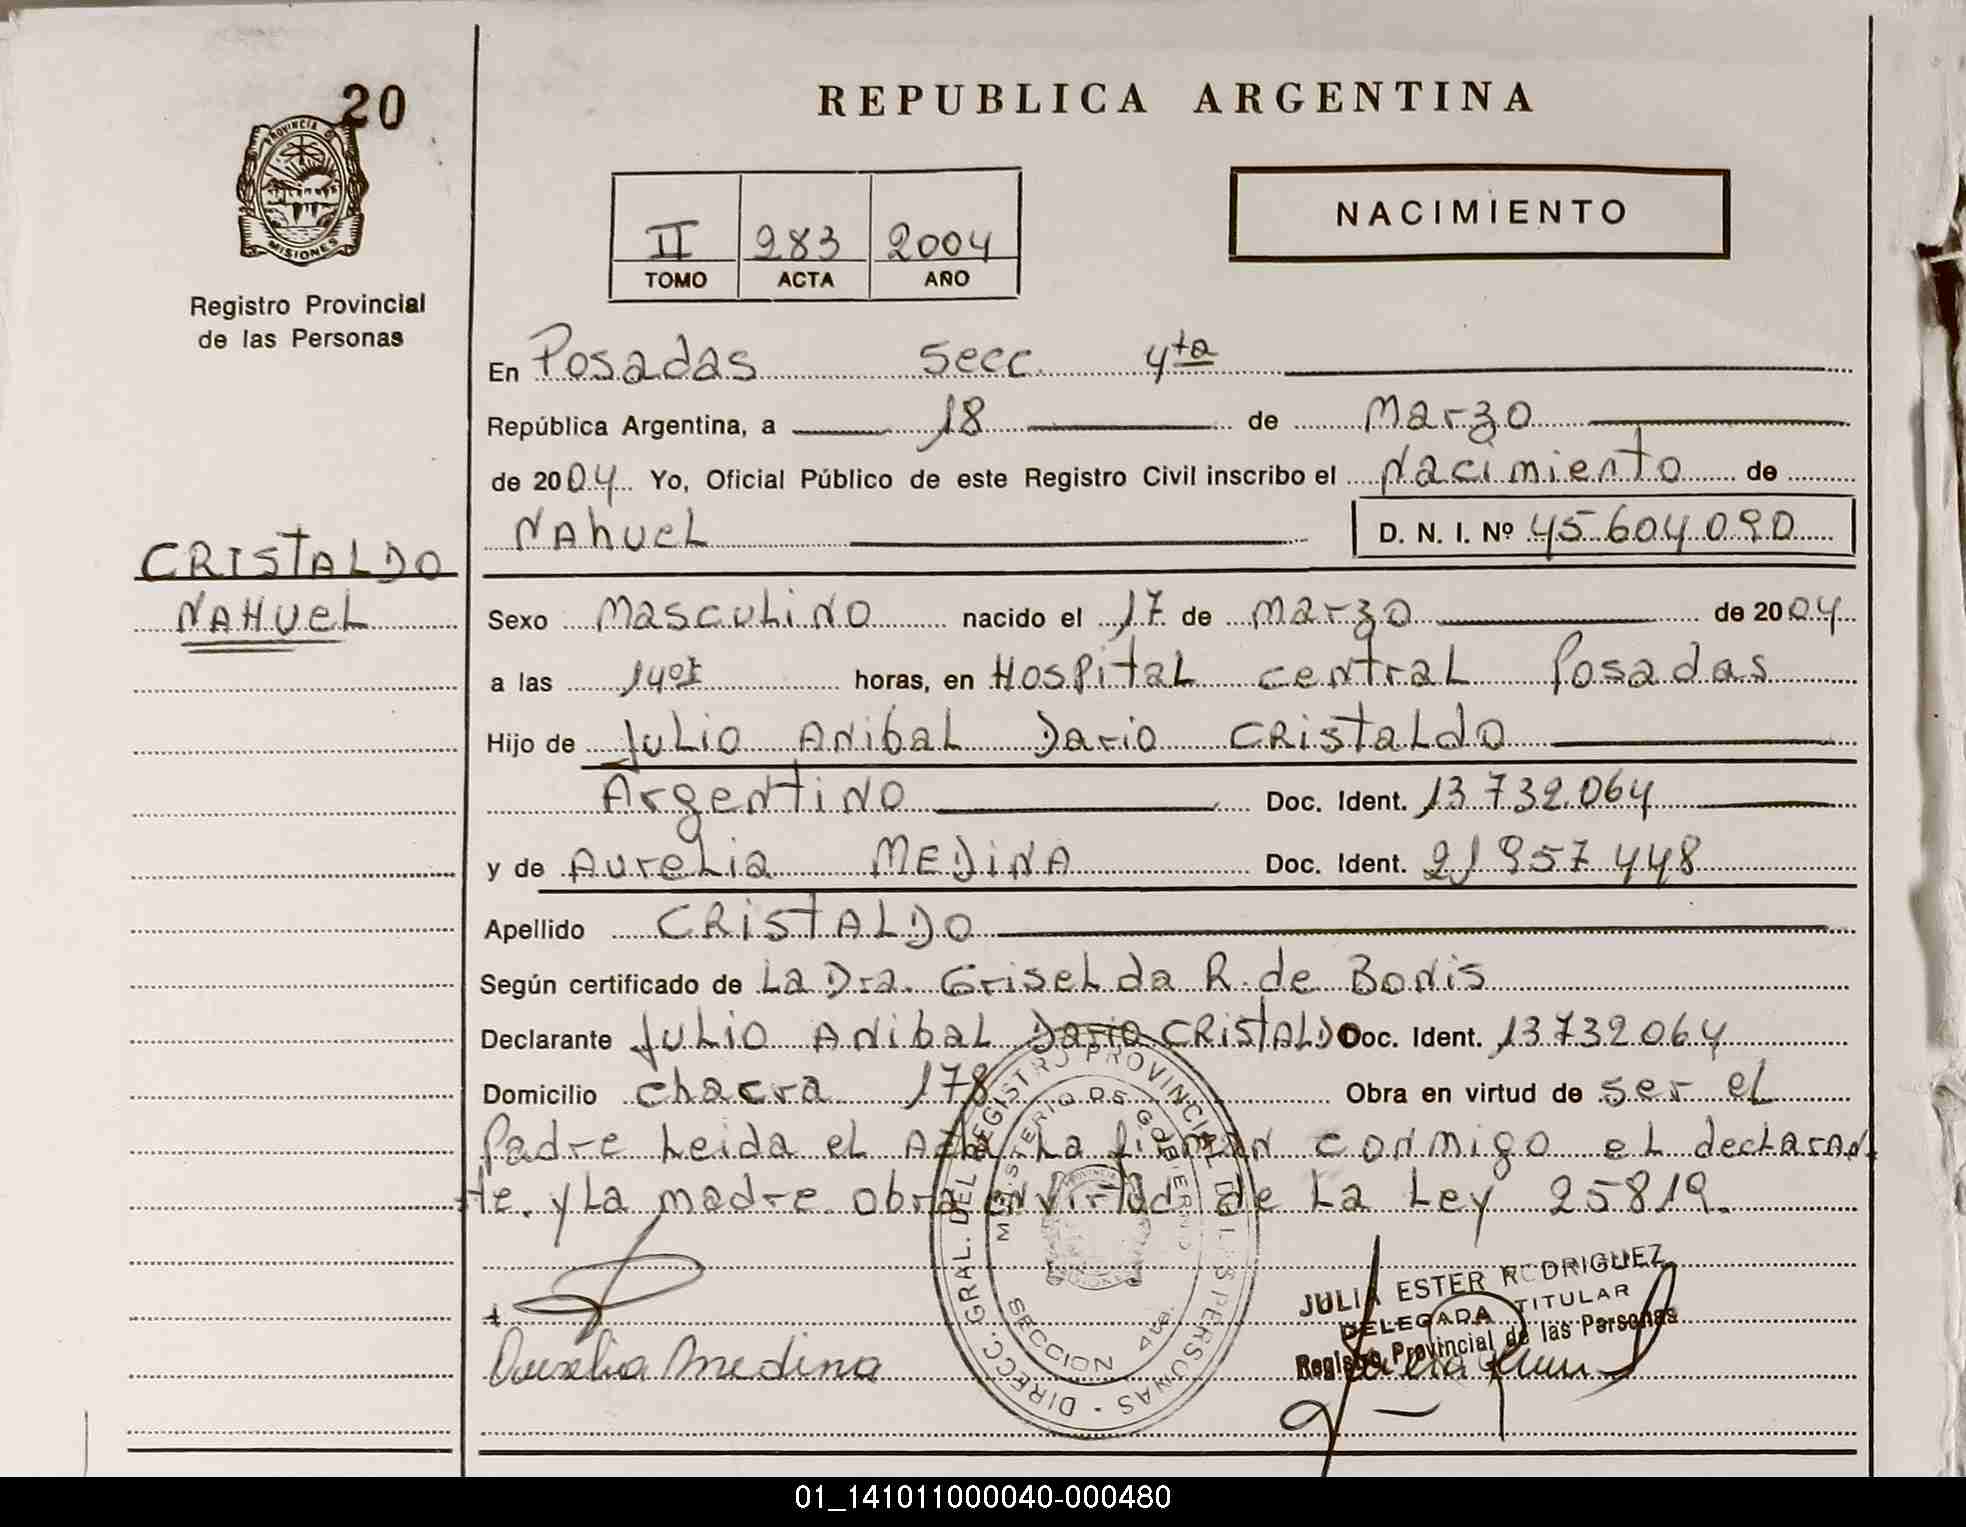 20
PROVINCIA D
MISIONES
Registro Provincial
de las Personas
REPUBLICA ARGENTINA
II 283 2004
TOMO ACTA AÑO
NACIMIENTO
En Posadas Secc. 4ta
República Argentina, a 18 de Marzo
de 2004 Yo, Oficial Público de este Registro Civil inscribo el Nacimiento de
Nahuel D. N. I. Nº 45.604.090
CRISTALDO
NAHUEL
Sexo Masculino nacido el 17 de Marzo de 2004
a las 14 horas, en Hospital central Posadas
Hijo de Julio Anibal Dario Cristaldo
Argentino Doc. Ident. 13.732.064
y de Aurelia MEDINA Doc. Ident. 21.957.448
Apellido CRISTALDO
Según certificado de La Dra. Griselda R. de Bonis
Declarante Julio Anibal Dario CRISTALDO Doc. Ident. 13.732.064
Domicilio chacra 178 Obra en virtud de ser el
Padre Leida el Acta La firman conmigo el declaran
te. y La madre obra en virtud de La Ley 25819.
Aurelia Medina
DIRECC. GRAL. DEL REGISTRO PROVINCIAL DE LAS PERSONAS
MINISTERIO DE GOBIERNO
SECCION 4ta.
JULIA ESTER RODRIGUEZ
DELEGADA TITULAR
Registro Provincial de las Personas
01_141011000040-000480